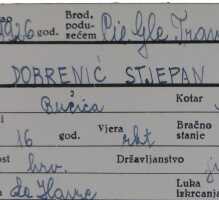 1926 god. Brod. podu- zećem Cie Gle Tran
DOBRENIĆ STJEPAN
Bučića Kotar
16 god. Vjera rkt Bračno stanje
ost hrv. Državljanstvo
Le Havre Luka izkrcanja